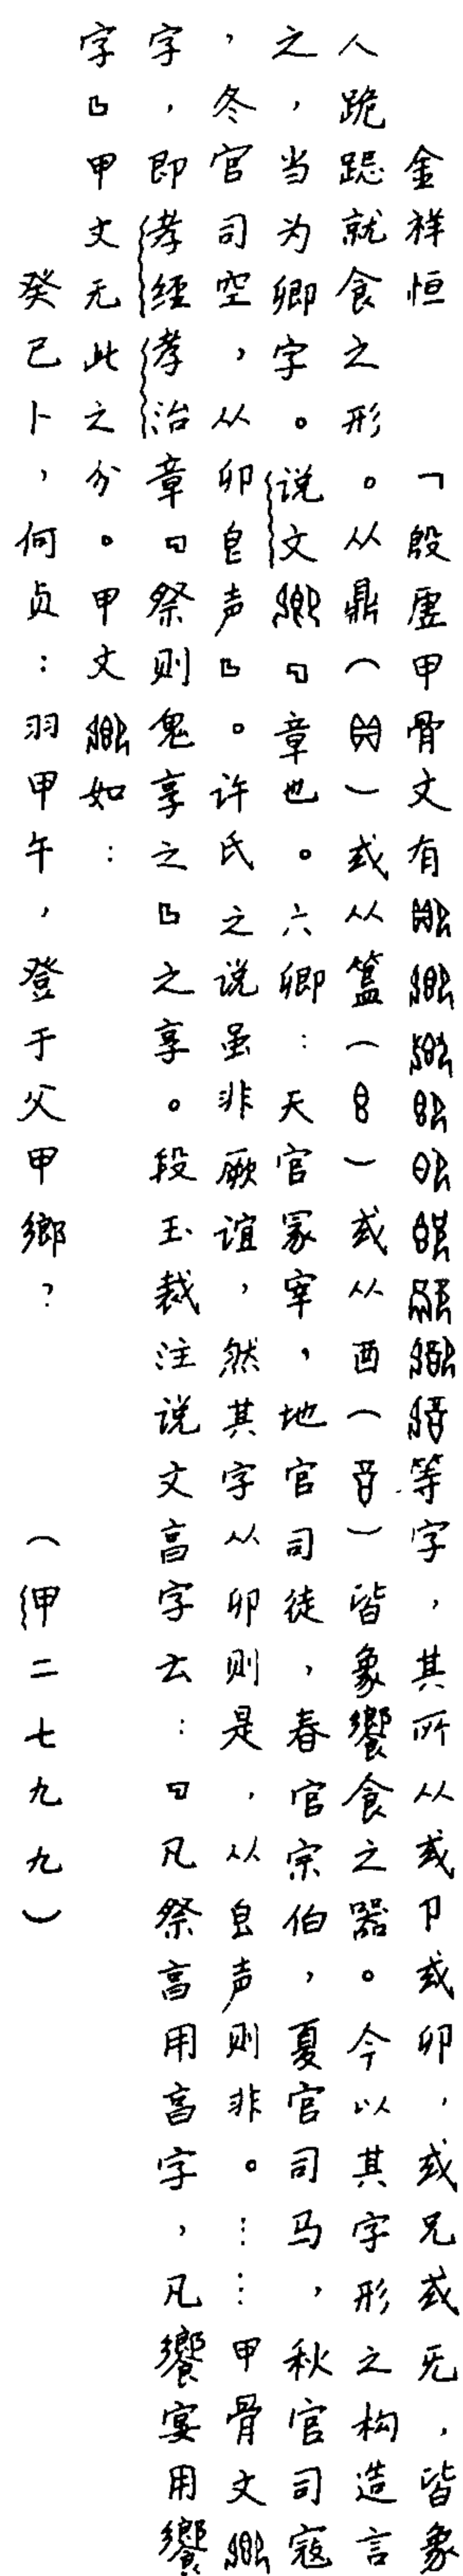 金祥恒　「殷虚甲骨文有等字，其所从或卩或卯，或兄或旡，皆象
人跪跽就食之形。从鼎（）或从簋（）或从酉（）皆象饗食之器。今以其字形之构造言
之，当为卿字。说文『章也。六卿：天官冢宰，地官司徒，春官宗伯，夏官司马，秋官司寇
，冬官司空，从卯皀声』。许氏之说虽非厥谊，然其字从卯则是，从皀声则非。……甲骨文
字，即孝经孝治章『祭则鬼享之』之享。段玉裁注说文亯字云：『凡祭亯用亯字，凡饗宴用饗
字』甲文无此之分。甲文如：
癸巳卜，何贞：羽甲午，登于父甲鄉？（甲二七九九）